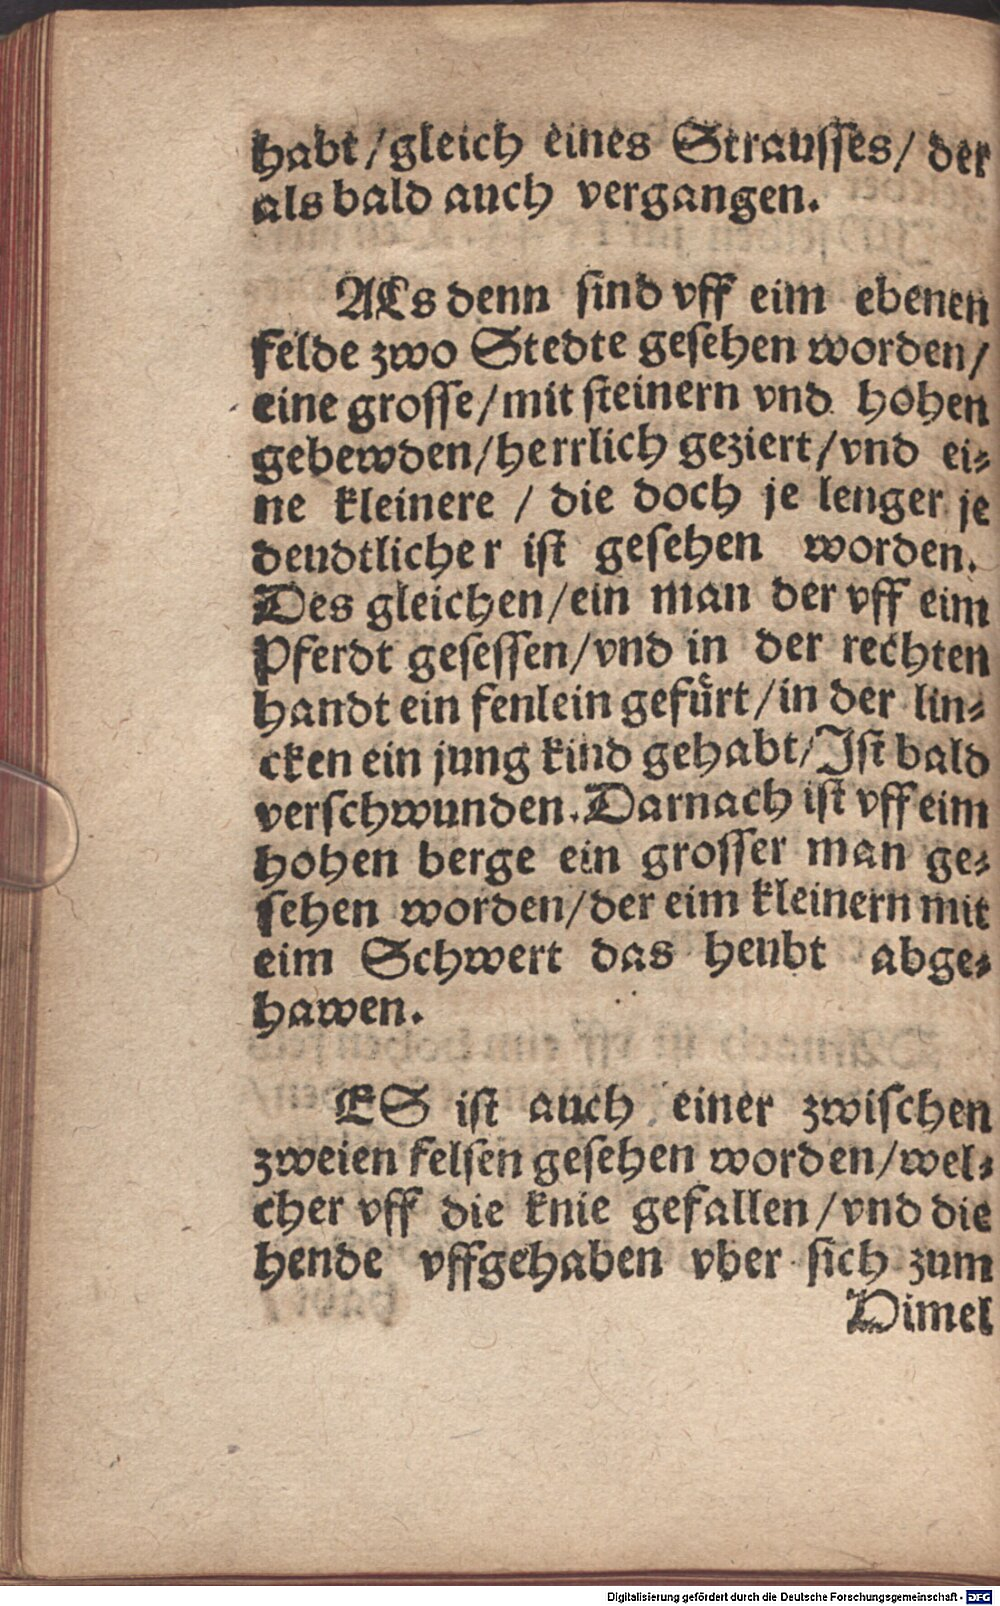 habt/gleich eines Strausses/ der
als bald auch vergangen.
ALs denn sind vff eim ebenen
felde zwo Stedte gesehen worden/
eine grosse/mit steinern vnd hohen
gebewden/herrlich geziert/vnd ei-
ne kleinere / die doch je lenger je
deudtlicher ist gesehen worden.
Des gleichen/ein man der vff eim
Pferdt gesessen/vnd in der rechten
handt ein fenlein gefürt/in der lin-
cken ein jung kind gehabt/Ist bald
verschwunden. Darnach ist vff eim
hohen berge ein grosser man ge-
sehen worden/der eim kleinern mit
eim Schwert das heubt abge-
hawen.
ES ist auch einer zwischen
zweien felsen gesehen worden/wel-
cher vff die knie gefallen/vnd die
hende vffgehaben vber sich zum
Himel
Digitalisierung gefördert durch die Deutsche Forschungsgemeinschaft - DFG